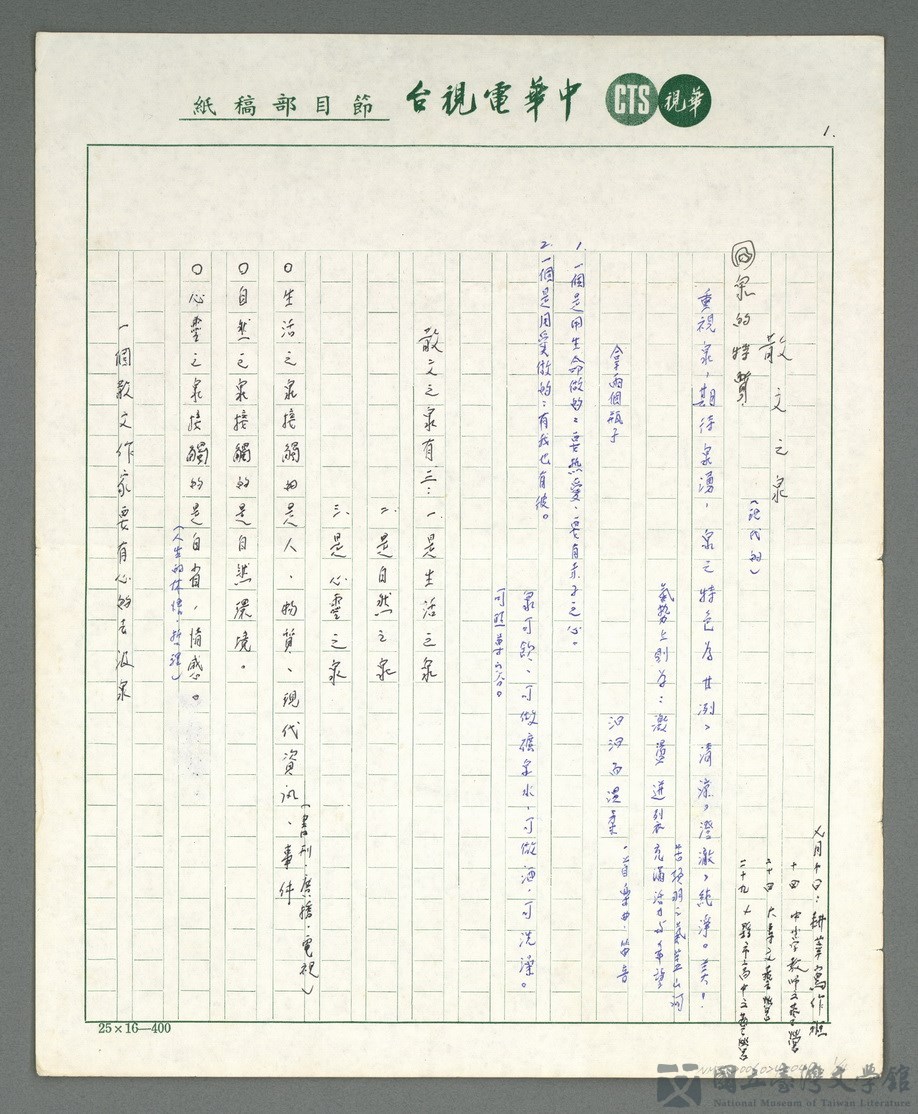 中華電視台節目部稿紙
CTS 華視
1.
七月十日：耕莘寫作班
十四 中小學教師文藝營
二十四 大專文藝營
二十九 大縣市高中文藝營
散文之泉
(現代的)
泉的特質
重視泉，期待泉湧，泉之特色為甘冽、清涼、澄澈、純淨。美！
氣勢上則為：激盪迸裂充滿活力與希望
汩汩而溫柔，音樂曲，笛音
拿兩個瓶子
1. 一個是用生命做的：要熱愛，要有赤子之心。
2. 一個是用愛做的：有我也有彼。
泉可飲、可做礦泉水、可做酒，可洗澡。
散文之泉有三：一、是生活之泉
二、是自然之泉
三、是心靈之泉
○生活之泉接觸的是人、物質、現代資訊、事件
(書刊、廣播、電視)
○自然之泉接觸的是自然環境。
○心靈之泉接觸的是自省，情感。
(人生的体悟、哲理)
一個散文作家要有心的去汲泉
25×16—400
國立臺灣文學館
National Museum of Taiwan Literature